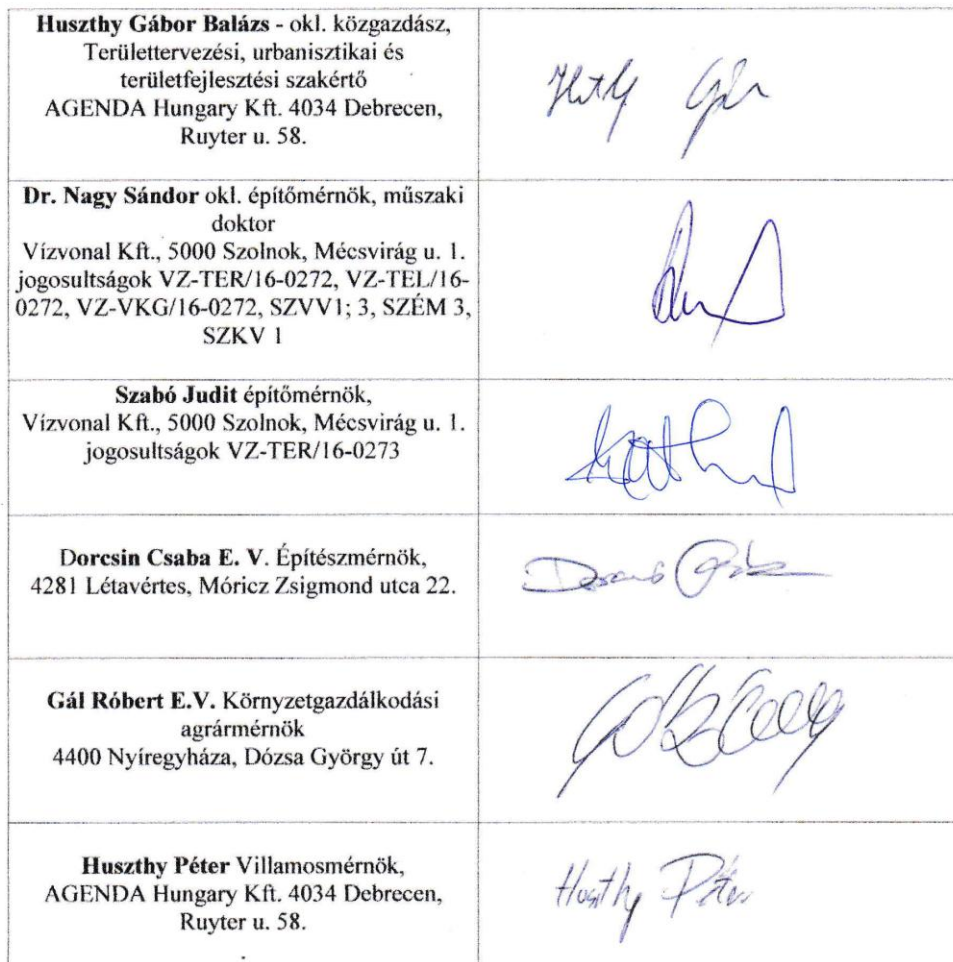 Huszthy Gábor Balázs - okl. közgazdász,
Területtervezési, urbanisztikai és
területfejlesztési szakértő
AGENDA Hungary Kft. 4034 Debrecen,
Ruyter u. 58.
Dr. Nagy Sándor okl. építőmérnök, műszaki
doktor
Vízvonal Kft., 5000 Szolnok, Mécsvirág u. 1.
jogosultságok VZ-TER/16-0272, VZ-TEL/16-
0272, VZ-VKG/16-0272, SZVV1; 3, SZÉM 3,
SZKV 1
Szabó Judit építőmérnök,
Vízvonal Kft., 5000 Szolnok, Mécsvirág u. 1.
jogosultságok VZ-TER/16-0273
Dorcsin Csaba E. V. Építészmérnök,
4281 Létavértes, Móricz Zsigmond utca 22.
Gál Róbert E.V. Környzetgazdálkodási
agrármérnök
4400 Nyíregyháza, Dózsa György út 7.
Huszthy Péter Villamosmérnök,
AGENDA Hungary Kft. 4034 Debrecen,
Ruyter u. 58.
Huszthy Péter